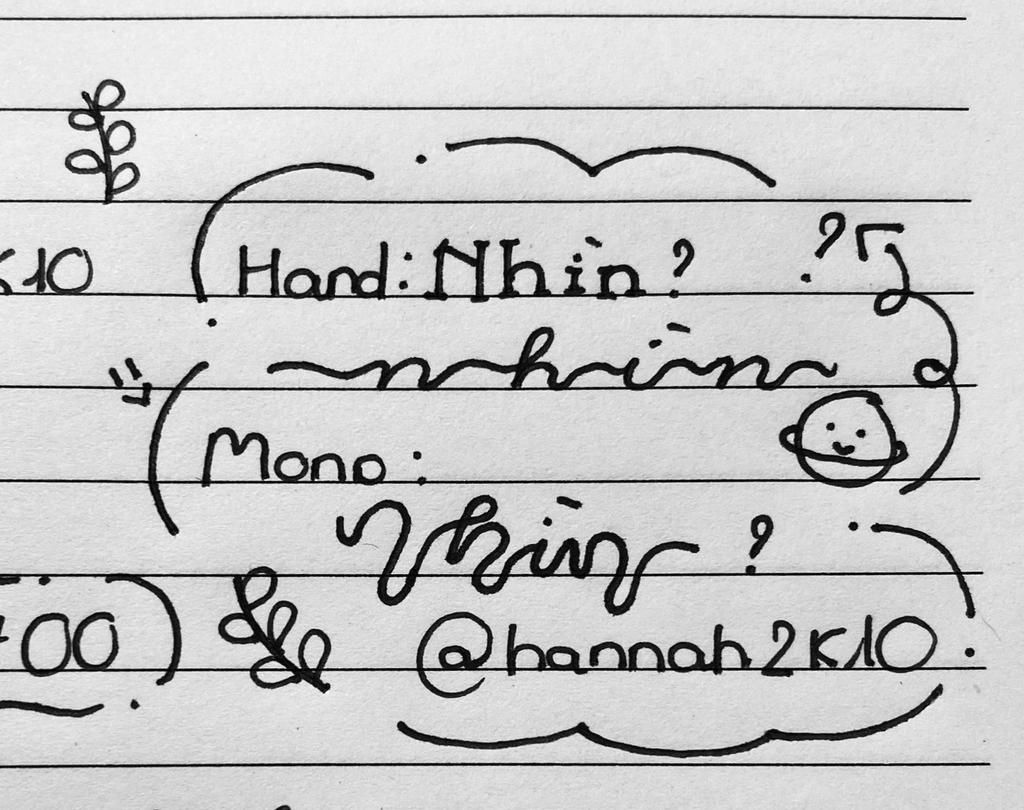 K10
Hand: Nhìn ? ?
nhìn
Mono:
Nhìn ?
00)
@hannah2K10.